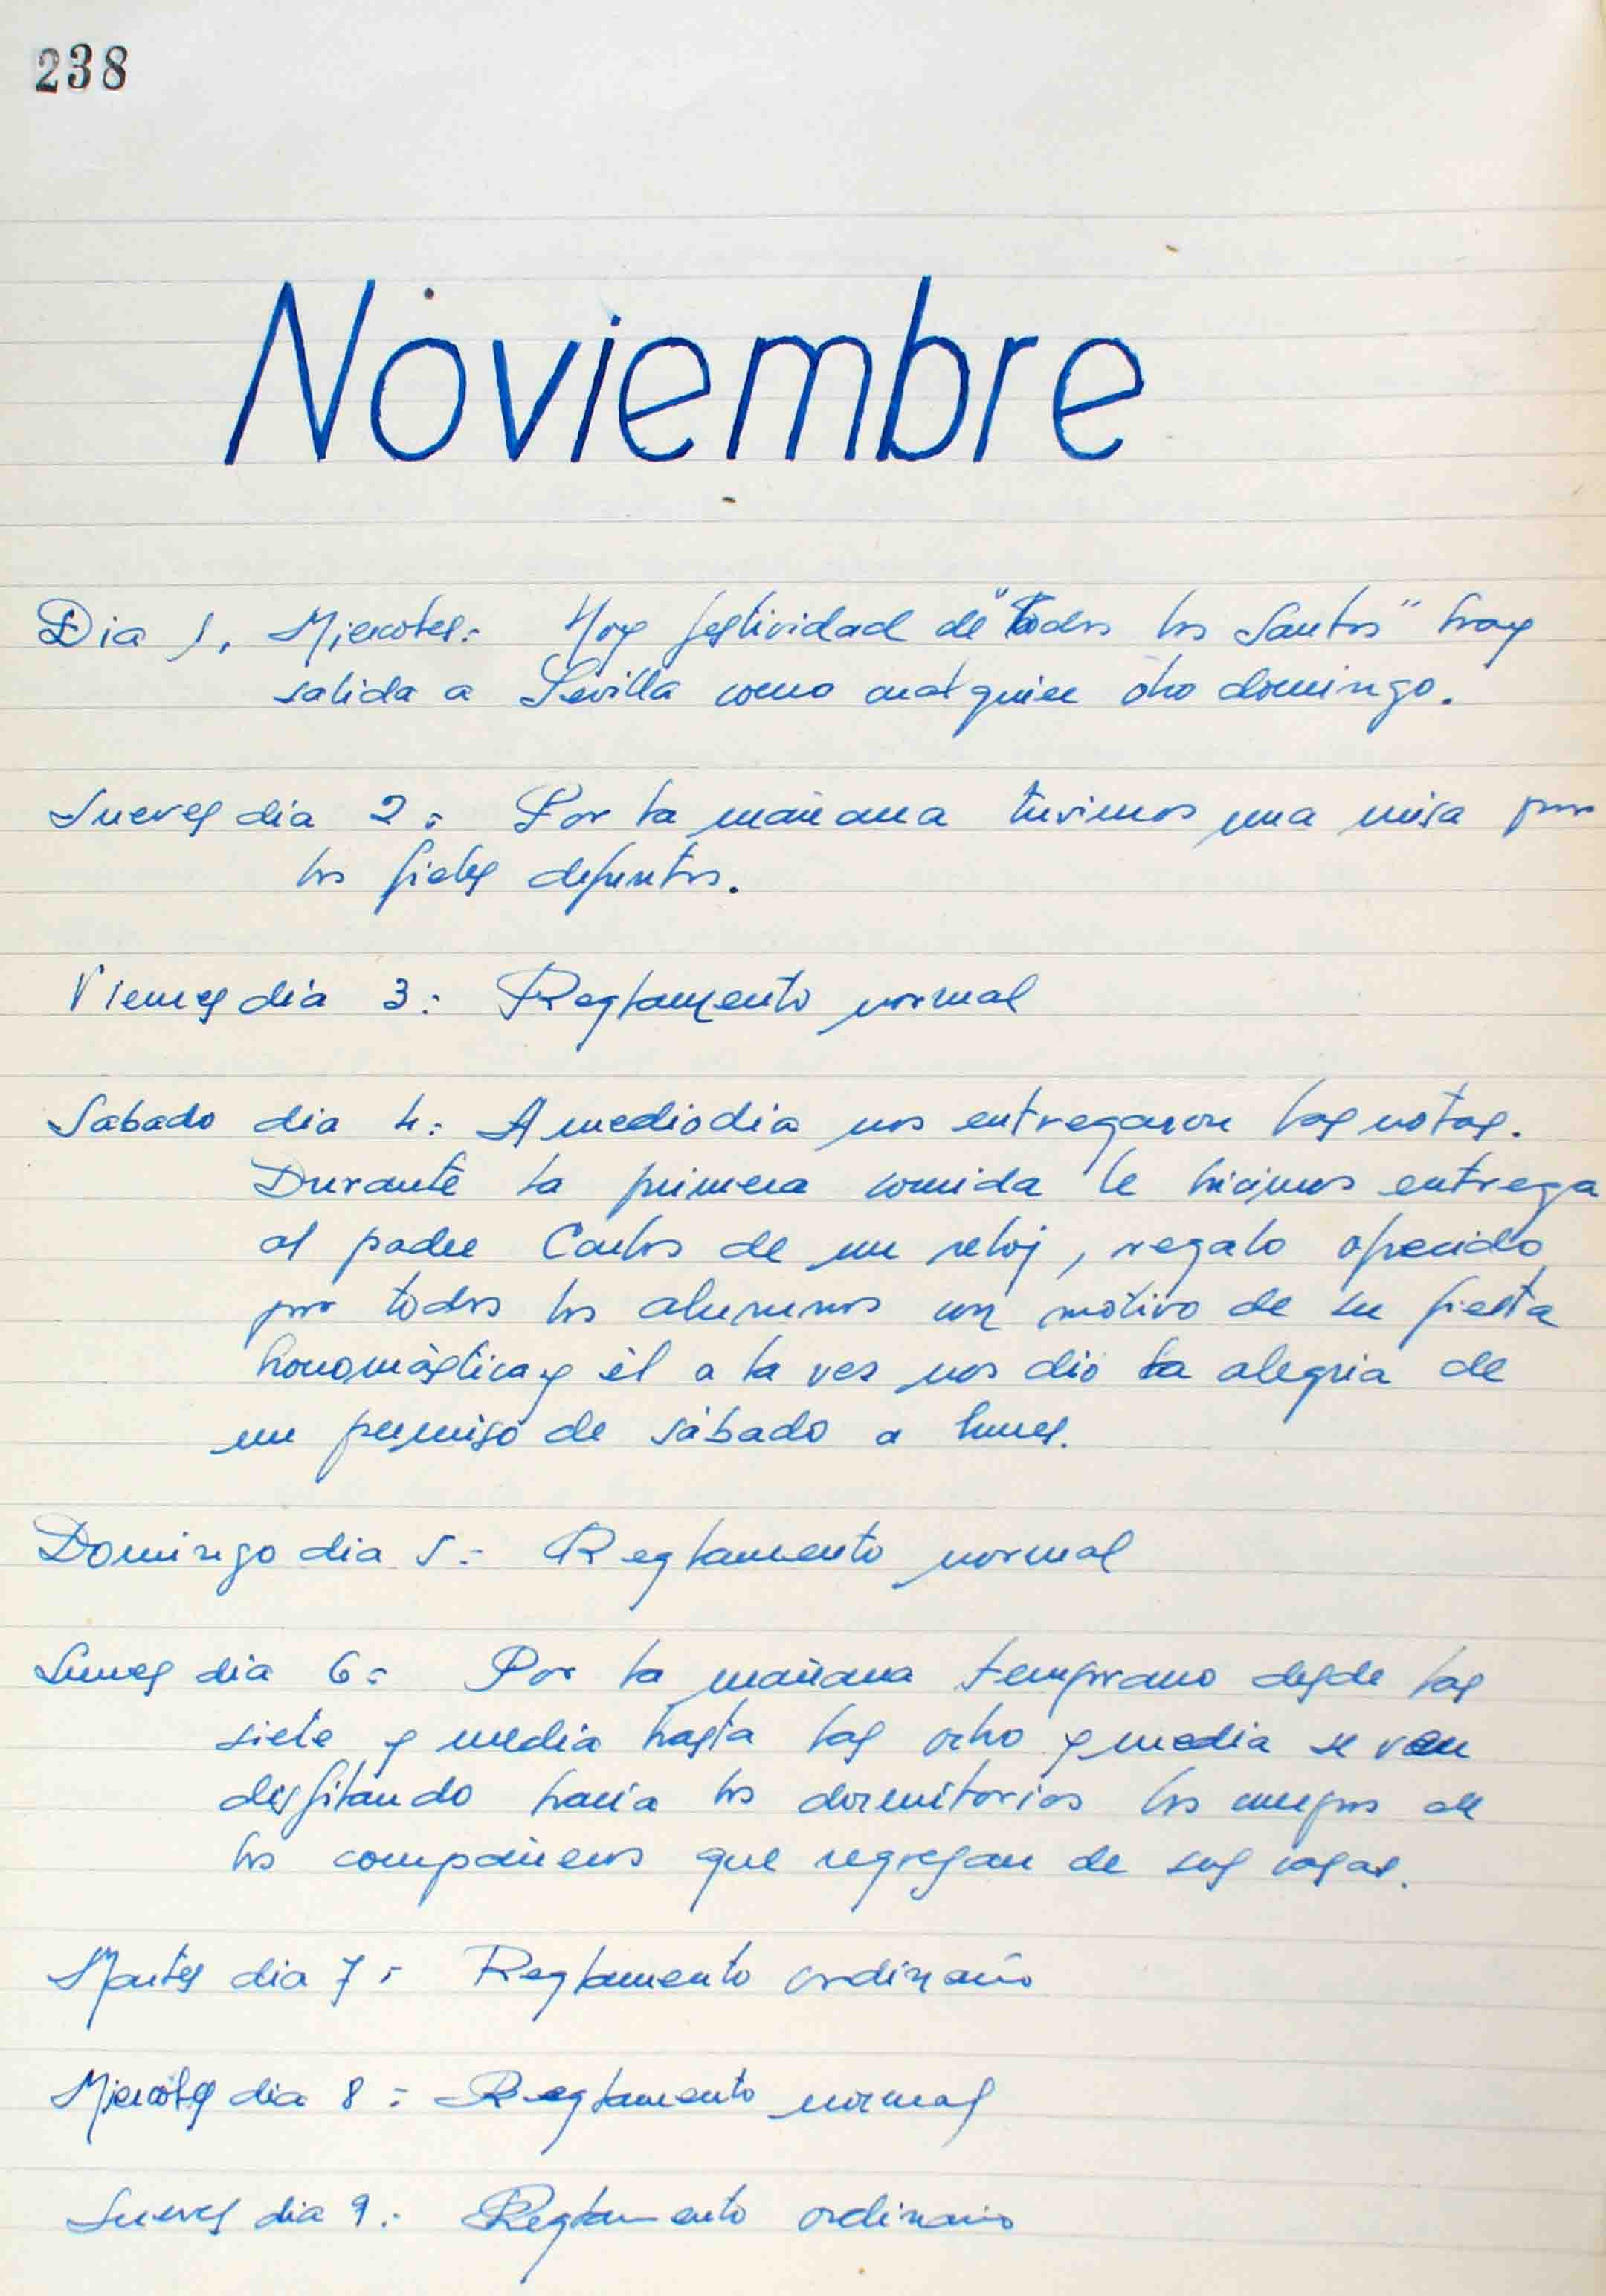 238
Noviembre
Dia 1, Miercoles:- Hoy festividad de "Todos los Santos" hay
salida a Sevilla como cualquier otro domingo.
Jueves dia 2:- Por la mañana tuvimos una misa por
los fieles defuntos.
Viernes dia 3:- Reglamento normal
Sabado dia 4:- A mediodia nos entregaron las notas.
Durante la primera comida le hicimos entrega
al padre Carlos de un reloj, regalo ofrecido
por todos los alumnos con motivo de su fiesta
honomástica y él a la vez nos dio la alegria de
un permiso de sábado a lunes.
Domingo dia 5:- Reglamento normal
Lunes dia 6:- Por la mañana temprano desde las
siete y media hasta las ocho y media se ven
desfilando hacia los dormitorios los cuerpos de
los compañeros que regresan de sus casas.
Martes dia 7:- Reglamento ordinario
Miercoles dia 8:- Reglamento normal
Jueves dia 9:- Reglamento ordinario